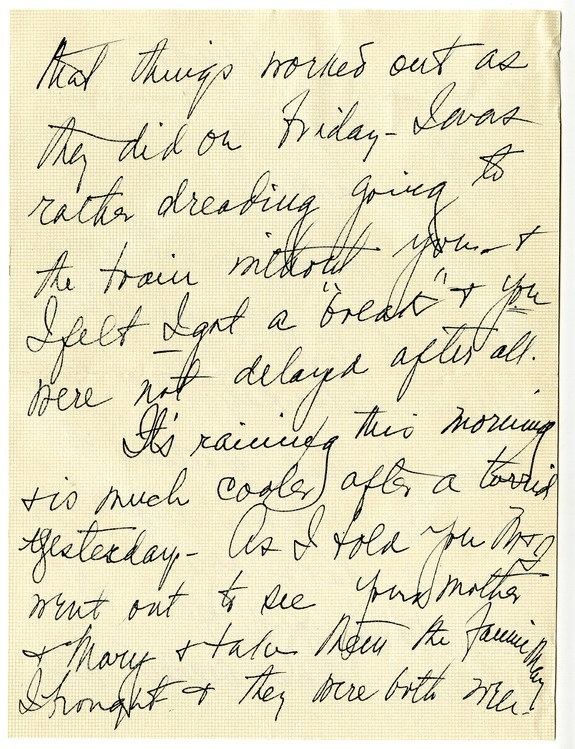 that things worked out as
they did on Friday - I was
rather dreading going to
the train without you - &
I felt I got a "break" & you
were not delayed after all.
It's raining this morning
& is much cooler after a torrid
yesterday - As I told you M & I
went out to see your mother
& Mary & take them the Fannie May
I brought & they were both well.